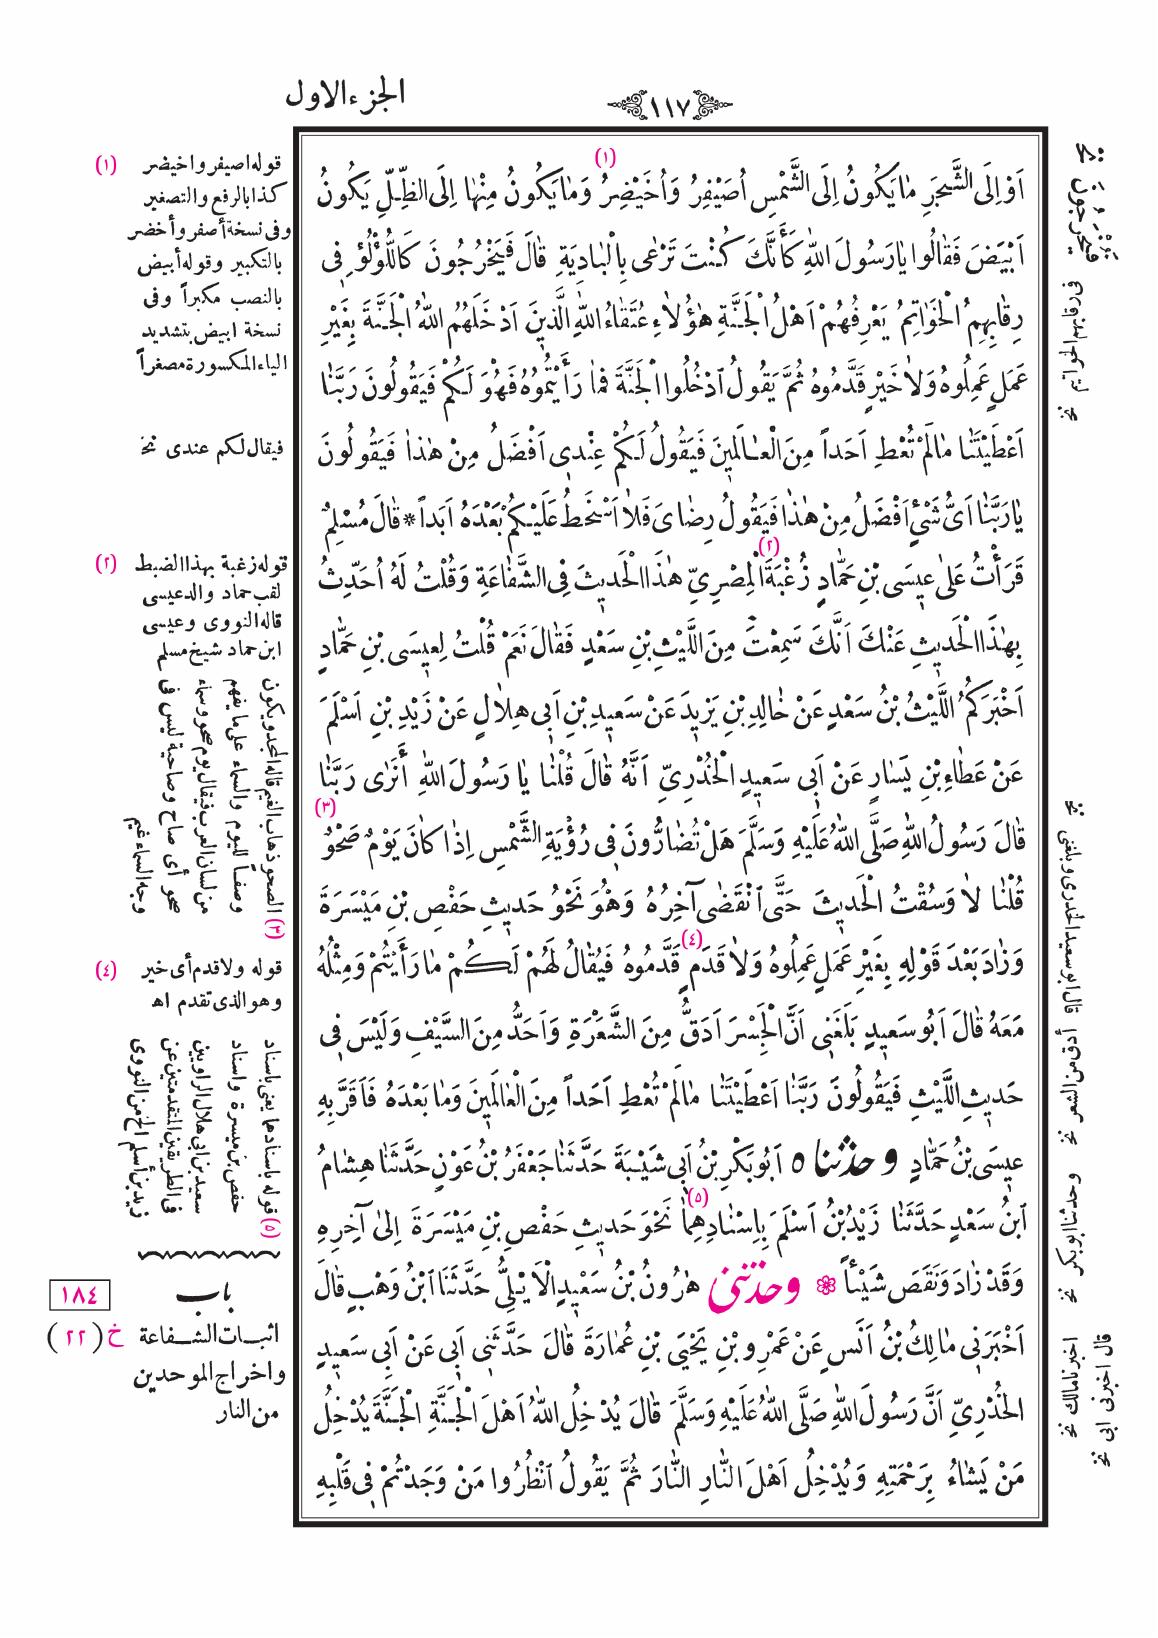 الجزء الاول
١١٧
اَوْ اِلَى الشَّجَرِ مَا يَكُونُ اِلَى الشَّمْسِ اُصَيْفِرُ وَاُخَيْضِرُ (١) وَمَا يَكُونُ مِنْهَا اِلَى الظِّلِّ يَكُونُ
اَبْيَضَ فَقَالُوا يَا رَسُولَ اللّٰهِ كَأَنَّكَ كُنْتَ تَرْعٰى بِالْبَادِيَةِ قَالَ فَيَخْرُجُونَ كَاللُّؤْلُؤِ فِى
رِقَابِهِمُ الْخَوَاتِمُ يَعْرِفُهُمْ اَهْلُ الْجَنَّةِ هٰؤُلَاءِ عُتَقَاءُ اللّٰهِ الَّذِينَ اَدْخَلَهُمُ اللّٰهُ الْجَنَّةَ بِغَيْرِ
عَمَلٍ عَمِلُوهُ وَلَا خَيْرٍ قَدَّمُوهُ ثُمَّ يَقُولُ ادْخُلُوا الْجَنَّةَ فَمَا رَأَيْتُمُوهُ فَهُوَ لَكُمْ فَيَقُولُونَ رَبَّنَا
اَعْطَيْتَنَا مَا لَمْ تُعْطِ اَحَداً مِنَ الْعَالَمِينَ فَيَقُولُ لَكُمْ عِنْدِى اَفْضَلُ مِنْ هٰذَا فَيَقُولُونَ
يَا رَبَّنَا اَىُّ شَيْءٍ اَفْضَلُ مِنْ هٰذَا فَيَقُولُ رِضَاىَ فَلَا اَسْخَطُ عَلَيْكُمْ بَعْدَهُ اَبَداً * قَالَ مُسْلِمٌ
قَرَأْتُ عَلٰى عِيسَى بْنِ حَمَّادٍ زُغْبَةَ (٢) الْمِصْرِيِّ هٰذَا الْحَدِيثَ فِى الشَّفَاعَةِ وَقُلْتُ لَهُ اُحَدِّثُ
بِهٰذَا الْحَدِيثِ عَنْكَ اَنَّكَ سَمِعْتَ مِنَ اللَّيْثِ بْنِ سَعْدٍ فَقَالَ نَعَمْ قُلْتُ لِعِيسَى بْنِ حَمَّادٍ
اَخْبَرَكُمُ اللَّيْثُ بْنُ سَعْدٍ عَنْ خَالِدِ بْنِ يَزِيدَ عَنْ سَعِيدِ بْنِ اَبِى هِلَالٍ عَنْ زَيْدِ بْنِ اَسْلَمَ
عَنْ عَطَاءِ بْنِ يَسَارٍ عَنْ اَبِى سَعِيدٍ الْخُدْرِيِّ اَنَّهُ قَالَ قُلْنَا يَا رَسُولَ اللّٰهِ أَنَرٰى رَبَّنَا
قَالَ رَسُولُ اللّٰهِ صَلَّى اللّٰهُ عَلَيْهِ وَسَلَّمَ هَلْ تُضَارُّونَ فِى رُؤْيَةِ الشَّمْسِ اِذَا كَانَ يَوْمٌ صَحْوٌ (٣)
قُلْنَا لَا وَسُقْتُ الْحَدِيثَ حَتَّى انْقَضٰى آخِرُهُ وَهُوَ نَحْوُ حَدِيثِ حَفْصِ بْنِ مَيْسَرَةَ
وَزَادَ بَعْدَ قَوْلِهِ بِغَيْرِ عَمَلٍ عَمِلُوهُ وَلَا قَدَمٍ (٤) قَدَّمُوهُ فَيُقَالُ لَهُمْ لَكُمْ مَا رَأَيْتُمْ وَمِثْلُهُ
مَعَهُ قَالَ اَبُو سَعِيدٍ بَلَغَنِى اَنَّ الْجِسْرَ اَدَقُّ مِنَ الشَّعْرَةِ وَاَحَدُّ مِنَ السَّيْفِ وَلَيْسَ فِى
حَدِيثِ اللَّيْثِ فَيَقُولُونَ رَبَّنَا اَعْطَيْتَنَا مَا لَمْ تُعْطِ اَحَداً مِنَ الْعَالَمِينَ وَمَا بَعْدَهُ فَاَقَرَّ بِهِ
عِيسَى بْنُ حَمَّادٍ وحدثنا ه اَبُو بَكْرِ بْنُ اَبِى شَيْبَةَ حَدَّثَنَا جَعْفَرُ بْنُ عَوْنٍ حَدَّثَنَا هِشَامُ
ابْنُ سَعْدٍ حَدَّثَنَا زَيْدُ بْنُ اَسْلَمَ بِاِسْنَادِهِمَا (٥) نَحْوَ حَدِيثِ حَفْصِ بْنِ مَيْسَرَةَ اِلٰى آخِرِهِ
وَقَدْ زَادَ وَنَقَصَ شَيْئاً وحدثنى هٰرُونُ بْنُ سَعِيدٍ الْاَيْلِىُّ حَدَّثَنَا ابْنُ وَهْبٍ قَالَ
اَخْبَرَنِى مَالِكُ بْنُ اَنَسٍ عَنْ عَمْرِو بْنِ يَحْيَى بْنِ عُمَارَةَ قَالَ حَدَّثَنِى اَبِى عَنْ اَبِى سَعِيدٍ
الْخُدْرِيِّ اَنَّ رَسُولَ اللّٰهِ صَلَّى اللّٰهُ عَلَيْهِ وَسَلَّمَ قَالَ يُدْخِلُ اللّٰهُ اَهْلَ الْجَنَّةِ الْجَنَّةَ يُدْخِلُ
مَنْ يَشَاءُ بِرَحْمَتِهِ وَيُدْخِلُ اَهْلَ النَّارِ النَّارَ ثُمَّ يَقُولُ انْظُرُوا مَنْ وَجَدْتُمْ فِى قَلْبِهِ
(١) قوله اصيفر واخيضر
كذا بالرفع والتصغير
وفى نسخة أصفر وأخضر
بالتكبير وقوله أبيض
بالنصب مكبراً وفى
نسخة ابيض بتشديد
الياء المكسورة مصغراً
فيقال لكم عندى نخ
(٢) قوله زغبة بهذا الضبط
لقب حماد والد عيسى
قاله النووى وعيسى
ابن حماد شيخ مسلم
(٣) الصحو ذهاب الغيم قاله المجد ويكون
وصفاً لليوم والسماء على ما يفهم
من لسان العرب فيقال يوم صحو وسماء
صحو أى صاح وصاحية ليس فى
وجه السماء غيم
(٤) قوله ولا قدم أى خير
وهو الذى تقدم اه
(٥) قوله باسنادهما يعنى باسناد
حفص بن ميسرة واسناد
سعيد بن ابى هلال الراويين
فى الطريقين المتقدمتين عن
زيد بن أسلم الخ من النووى
باب
١٨٤
اثبات الشفاعة خ (٢٢)
واخراج الموحدين
من النار
فيخرجون نخ
فى رقابهم الخواتيم نخ
قال ابو سعيد الخدرى وبلغنى نخ
أدق من الشعر نخ
وحدثنا ابو بكر نخ
اخبرنا مالك نخ
قال اخبرنى ابى نخ